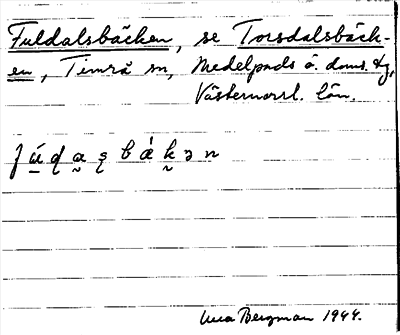 Fuldalsbäcken, se Torsdalsbäck-
en, Timrå sn, Medelpads ö. doms. tg,
Västernorrl. län.
Bergman 1944.